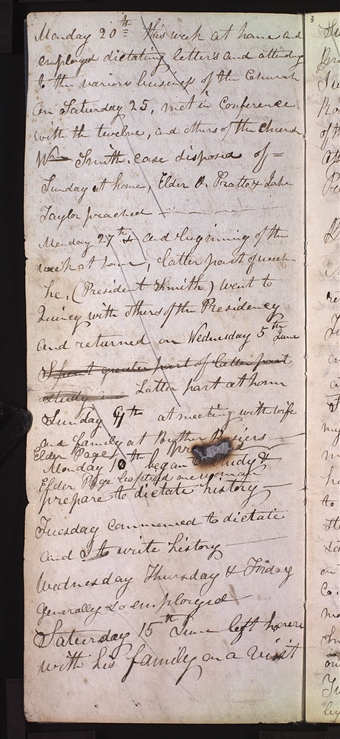 Monday 20th this week at home and
employed dictating letters and attending
to the various business of the Church
On Saturday 25, met in Conference
with the twelve, and others of the church
Wm Smith case disposed of =
Sunday at home, Elder O. Pratt & John
Taylor preached
Monday 27th & and beginning of the
week at home, latter part of week
he, (President Smith) went to
Quincy with others of the Presidency
and returned on Wednesday 5th June
Spent greater part of latter part
study Latter part at home
Sunday 9th at meeting with wife
and family at Brother
Elder Page
Monday 10th began study &
Elder Page baptized one
prepare to dictate history
Tuesday commenced to dictate
and I to write history
Wednesday Thursday & Friday
generally so employed
Saturday 15th June left home
with his family on a visit